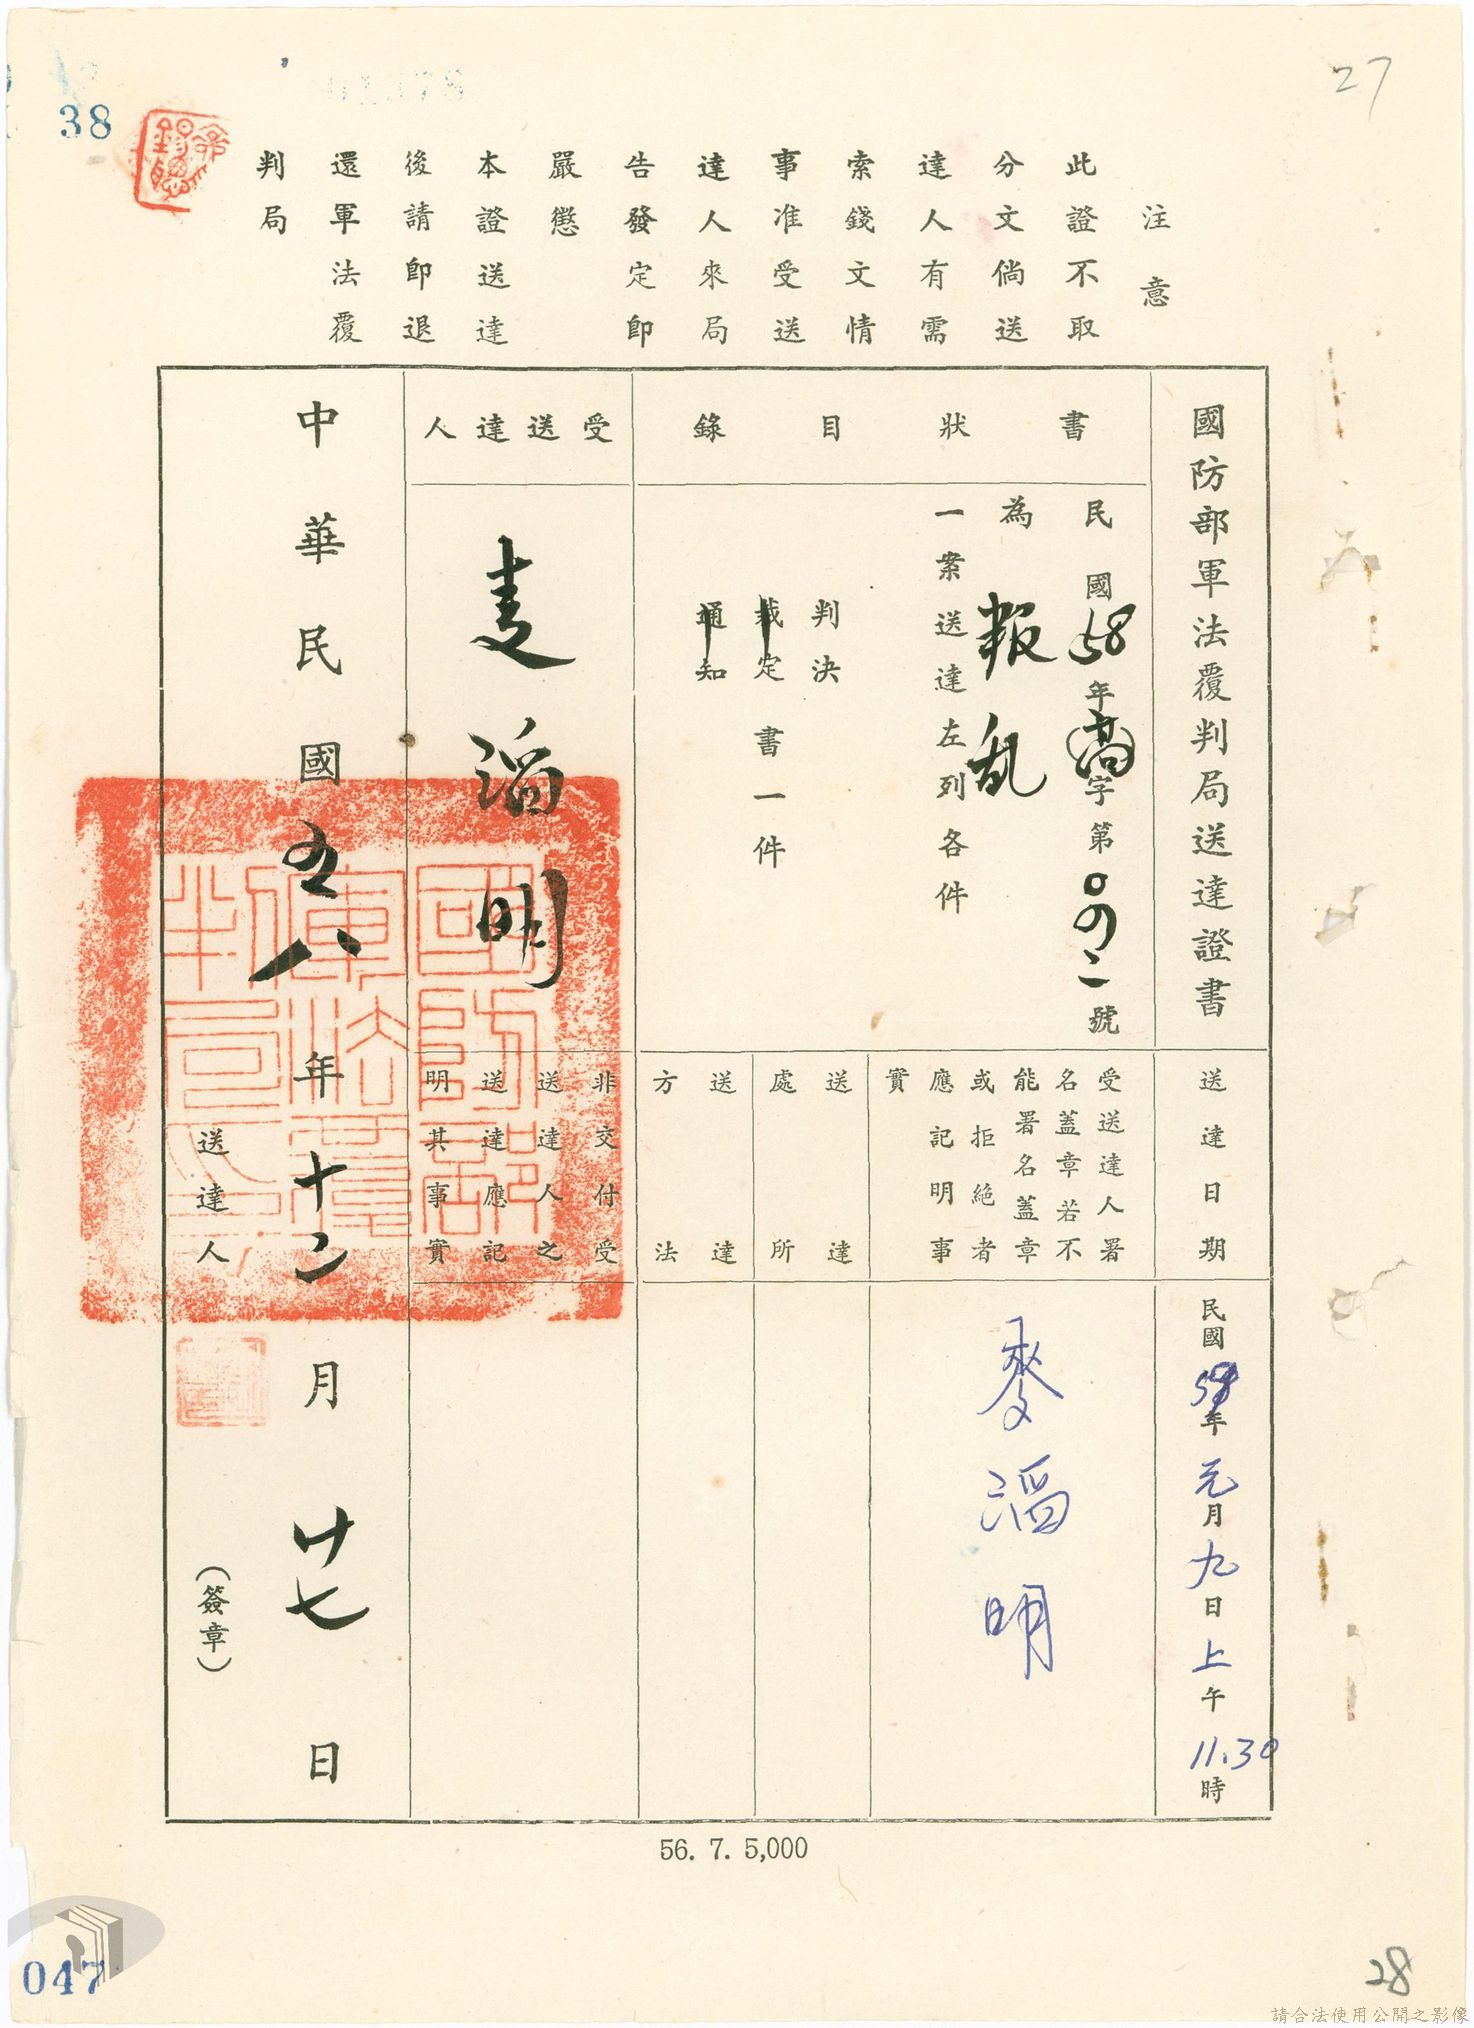 27
38
注意
此證不取
分文倘送
達人有需
索錢文情
事准受送
達人來局
告發定即
嚴懲
本證送達
後請即退
還軍法覆
判局
國防部軍法覆判局送達證書
書狀目錄
民國58年高字第〇四二號
為叛亂
一案送達左列各件
判決
裁定書一件
通知
受送達人
麦滔明
送達日期
民國59年元月九日上午11.30時
受送達人署
名蓋章若不
能署名蓋章
或拒絕者
應記明事
實
麥滔明
送達
處所
送達
方法
非交付受
送達人之
送達應記
明其事實
中華民國五八年十二月廿七日
送達人
(簽章)
國防部軍法覆判局印
56. 7. 5,000
047
28
請合法使用公開之影像